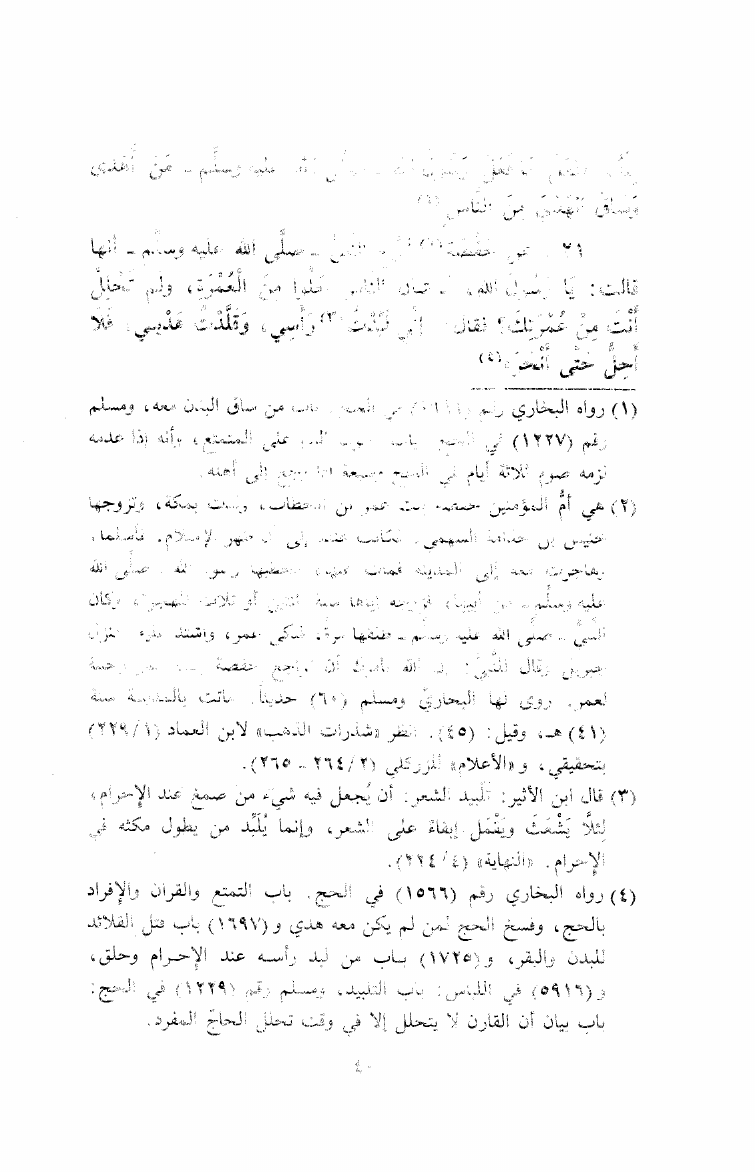 عليه وسلَّم ـ مَنْ أَهْدَى
وَسَاقَ الْهَدْيَ مِنَ النَّاسِ (١)
٢١ ـ عن حَفْصَةَ (٢) ـ صلَّى الله عليه وسلَّم ـ أنها
قالت: يَا رَسُولَ الله، الناس حَلُّوا مِنَ الْعُمْرَةِ، ولم تَحْلِلْ
أَنْتَ مِنْ عُمْرَتِكَ؟ فقال: إنِّي لَبَّدْتُ (٣) رَأْسِي، وَقَلَّدْتُ هَدْيِي، فَلَا
أَحِلُّ حَتَّى أَنْحَرَ (٤)
(١) رواه البخاري رقم من ساق البدن معه، ومسلم
رقم (١٢٢٧) في الحج على المتمتع، وأنه إذا عدمه
لزمه صوم ثلاثة أيام في الحج وسبعة إذا رجع إلى أهله.
(٢) هي أمُّ المؤمنين حفصة بنت عمر بن الخطاب، ولدت بمكة، وتزوجها
خنيس بن حذافة السهمي، فكانت عنده إلى أن ظهر الإسلام، فأسلما،
وهاجرت معه إلى المدينة فمات عنها، فخطبها رسول الله ـ صلَّى الله
عليه وسلَّم ـ من أبيها، فزوجه إياها سنة اثنتين أو ثلاث للهجرة، وكان
النبيُّ ـ صلى الله عليه وسلم ـ طلقها مرة، فبكى عمر، واشتد فنزل
جبريل وقال للنَّبيِّ: إن الله يأمرك أن تراجع حفصة رحمة
لعمر. روى لها البخاريّ ومسلم (٦٠) حديثاً. ماتت بالمدينة سنة
(٤١) هـ، وقيل: (٤٥). انظر «شذرات الذهب» لابن العماد (١/ ٢٢٩)
بتحقيقي، و «الأعلام» للزركلي (٢/ ٢٦٤ ـ ٢٦٥).
(٣) قال ابن الأثير: تلْبيد الشعر: أن يُجعل فيه شيْء من صمغ عند الإحرام،
لِئلَّا يَشْعَثَ ويَقْمَل إبقاءً على الشعر، وإنما يُلَبِّد من يطول مكثه في
الإحرام. «النهاية» (٤/ ٢٢٤).
(٤) رواه البخاري رقم (١٥٦٦) في الحج. باب التمتع والقران والإفراد
بالحج، وفسخ الحج لمن لم يكن معه هدي و (١٦٩٧) باب فتل القلائد
للبدن والبقر، و (١٧٢٥) باب من لبد رأسه عند الإحرام وحلق،
و (٥٩١٦) في اللباس: باب التلبيد، ومسلم رقم (١٢٢٩) في الحج:
باب بيان أن القارن لا يتحلل إلا في وقت تحلل الحاجّ المفرد.
٤٠